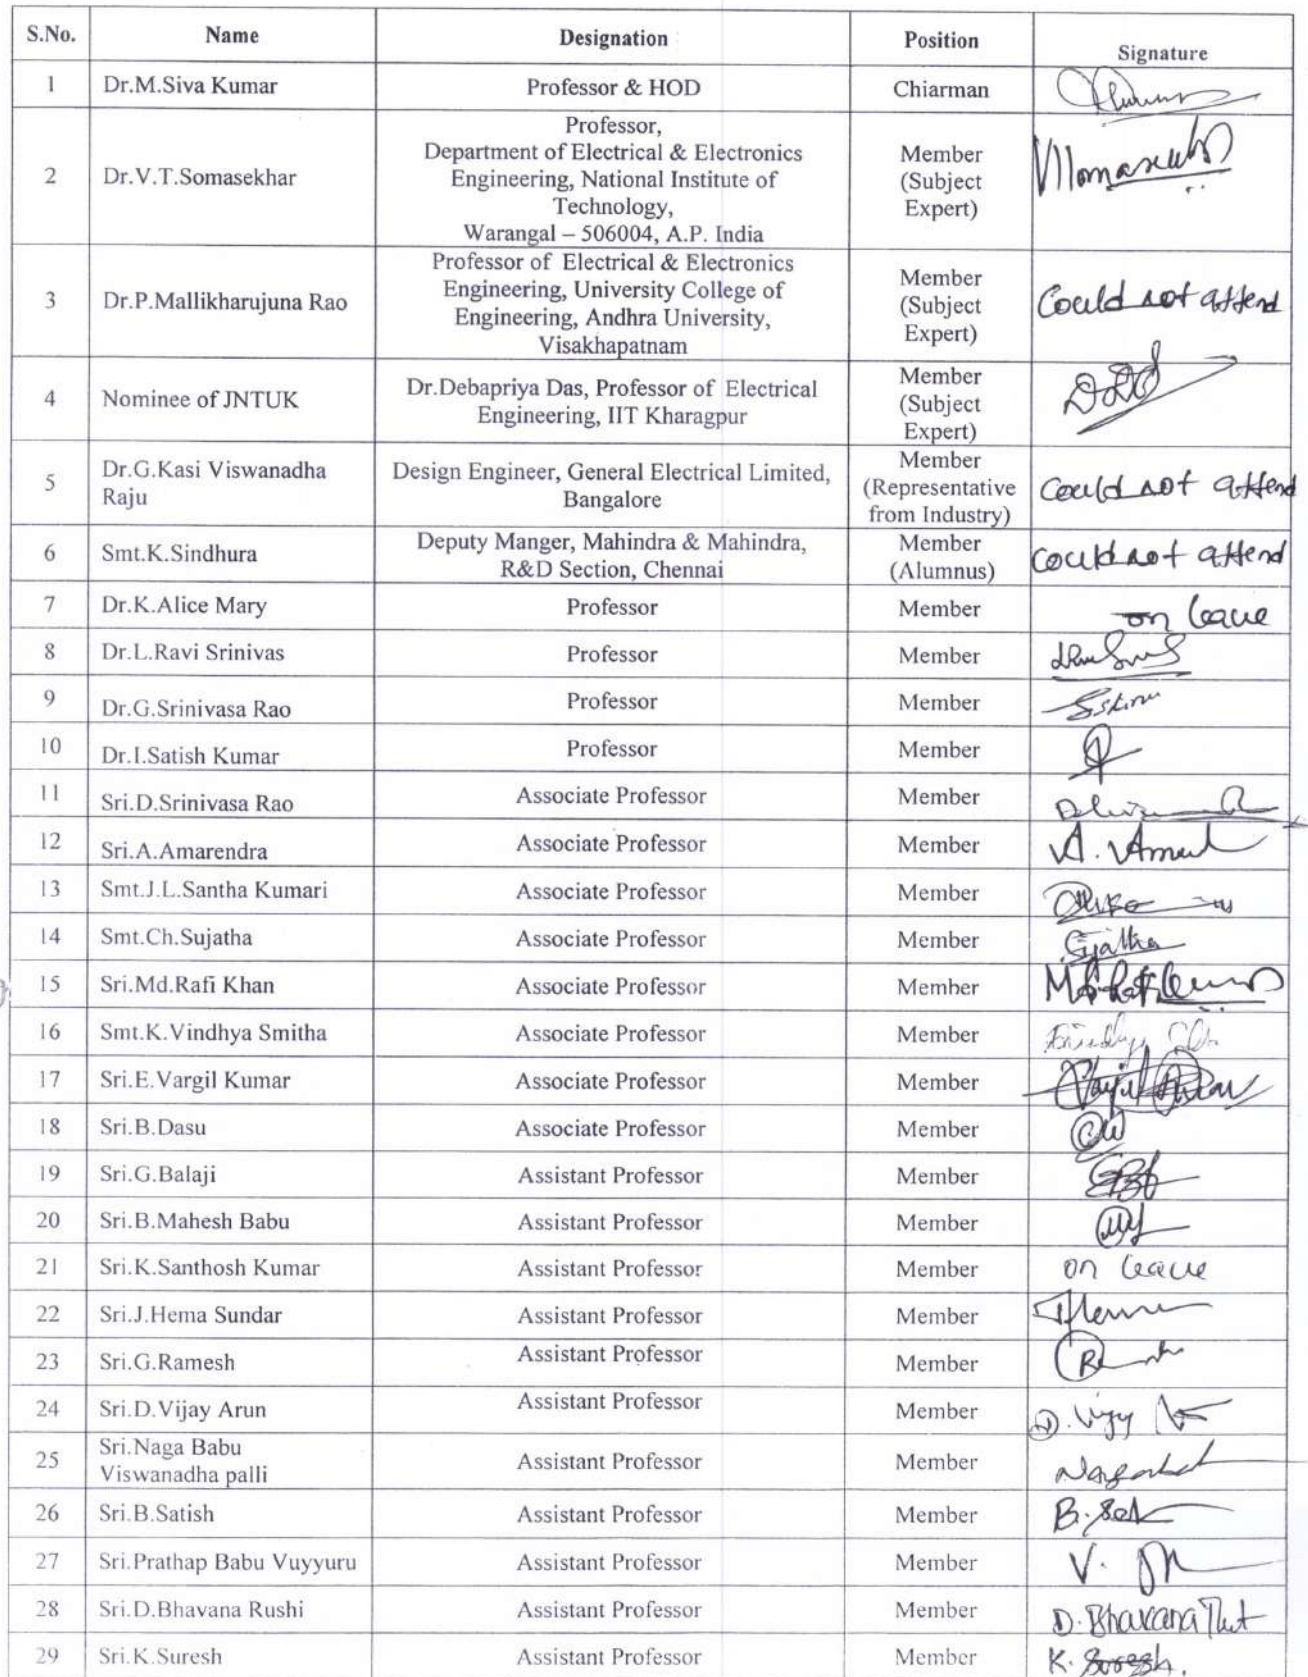 S.No. Name Designation Position Signature
1 Dr.M.Siva Kumar Professor & HOD Chiarman
Professor,
Department of Electrical & Electronics
2 Dr.V.T.Somasekhar Engineering, National Institute of Member
(Subject
Technology, Expert)
Warangal – 506004, A.P. India
Professor of Electrical & Electronics
3 Dr.P.Mallikharujuna Rao Engineering, University College of Member
(Subject Could not attend
Engineering, Andhra University, Expert)
Visakhapatnam
4 Nominee of JNTUK Dr.Debapriya Das, Professor of Electrical Member
Engineering, IIT Kharagpur (Subject
Expert)
5 Dr.G.Kasi Viswanadha Design Engineer, General Electrical Limited, Member
Raju Bangalore (Representative Could not attend
from Industry)
6 Smt.K.Sindhura Deputy Manger, Mahindra & Mahindra, Member Could not attend
R&D Section, Chennai (Alumnus)
7 Dr.K.Alice Mary Professor Member on leave
8 Dr.L.Ravi Srinivas Professor Member
9 Dr.G.Srinivasa Rao Professor Member
10 Dr.I.Satish Kumar Professor Member
11 Sri.D.Srinivasa Rao Associate Professor Member
12 Sri.A.Amarendra Associate Professor Member
13 Smt.J.L.Santha Kumari Associate Professor Member
14 Smt.Ch.Sujatha Associate Professor Member
15 Sri.Md.Rafi Khan Associate Professor Member
16 Smt.K.Vindhya Smitha Associate Professor Member
17 Sri.E.Vargil Kumar Associate Professor Member
18 Sri.B.Dasu Associate Professor Member
19 Sri.G.Balaji Assistant Professor Member
20 Sri.B.Mahesh Babu Assistant Professor Member
21 Sri.K.Santhosh Kumar Assistant Professor Member on leave
22 Sri.J.Hema Sundar Assistant Professor Member
23 Sri.G.Ramesh Assistant Professor Member
24 Sri.D.Vijay Arun Assistant Professor Member
25 Sri.Naga Babu Assistant Professor Member
Viswanadha palli
26 Sri.B.Satish Assistant Professor Member
27 Sri.Prathap Babu Vuyyuru Assistant Professor Member
28 Sri.D.Bhavana Rushi Assistant Professor Member D. Bhavana
29 Sri.K.Suresh Assistant Professor Member K. Suresh.